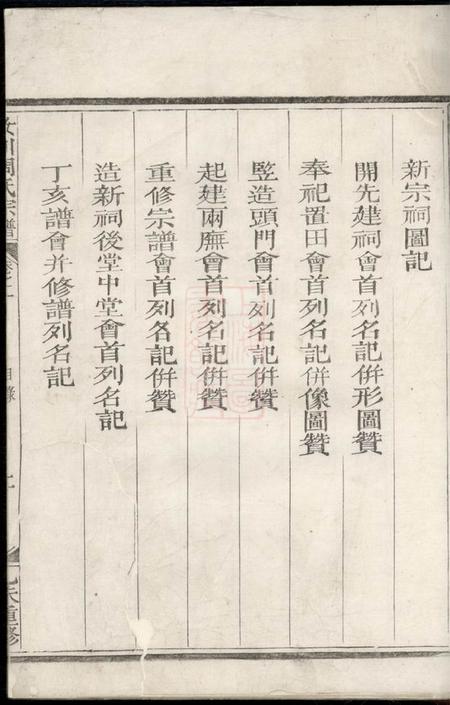 新宗祠圖記
開先建祠會首列名記併形圖贊
奉祀置田會首列名記併像圖贊
竪造頭門會首列名記併贊
起建兩廡會首列名記併贊
重修宗譜會首列名記併贊
造新祠後堂中堂會首列名記
丁亥譜會并修譜列名記
周氏宗譜
目錄
重修